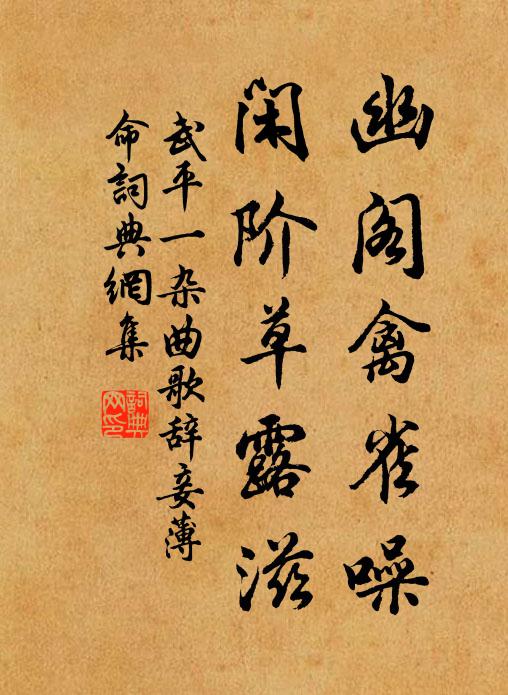 幽阁禽雀噪
闲阶草露滋
武平一杂曲歌辞妾薄
命詞典網集
詞典网印